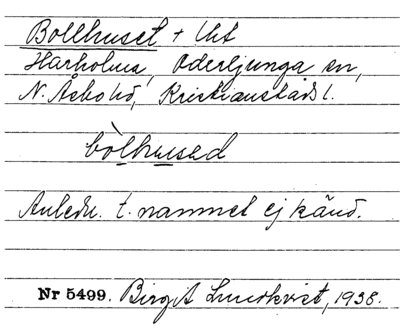 Bollhuset + lht
Harholma, Oderljunga sn,
N. Åsbo hd, Kristianstads l.
bòlhused
Anledn. t. namnet ej känd.
Nr 5499. Birgit Lundkvist, 1938.